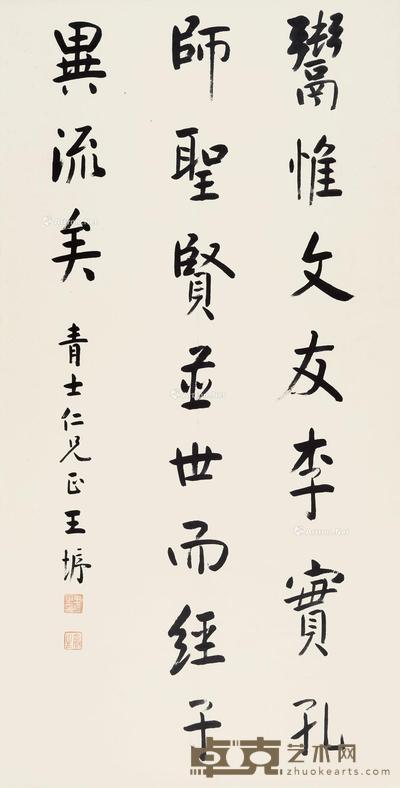 鬻惟文友李實孔
師聖賢並世而經子
異流矣
青士仁兄正 王𡒊
卓克艺术网
zhuokearts.com